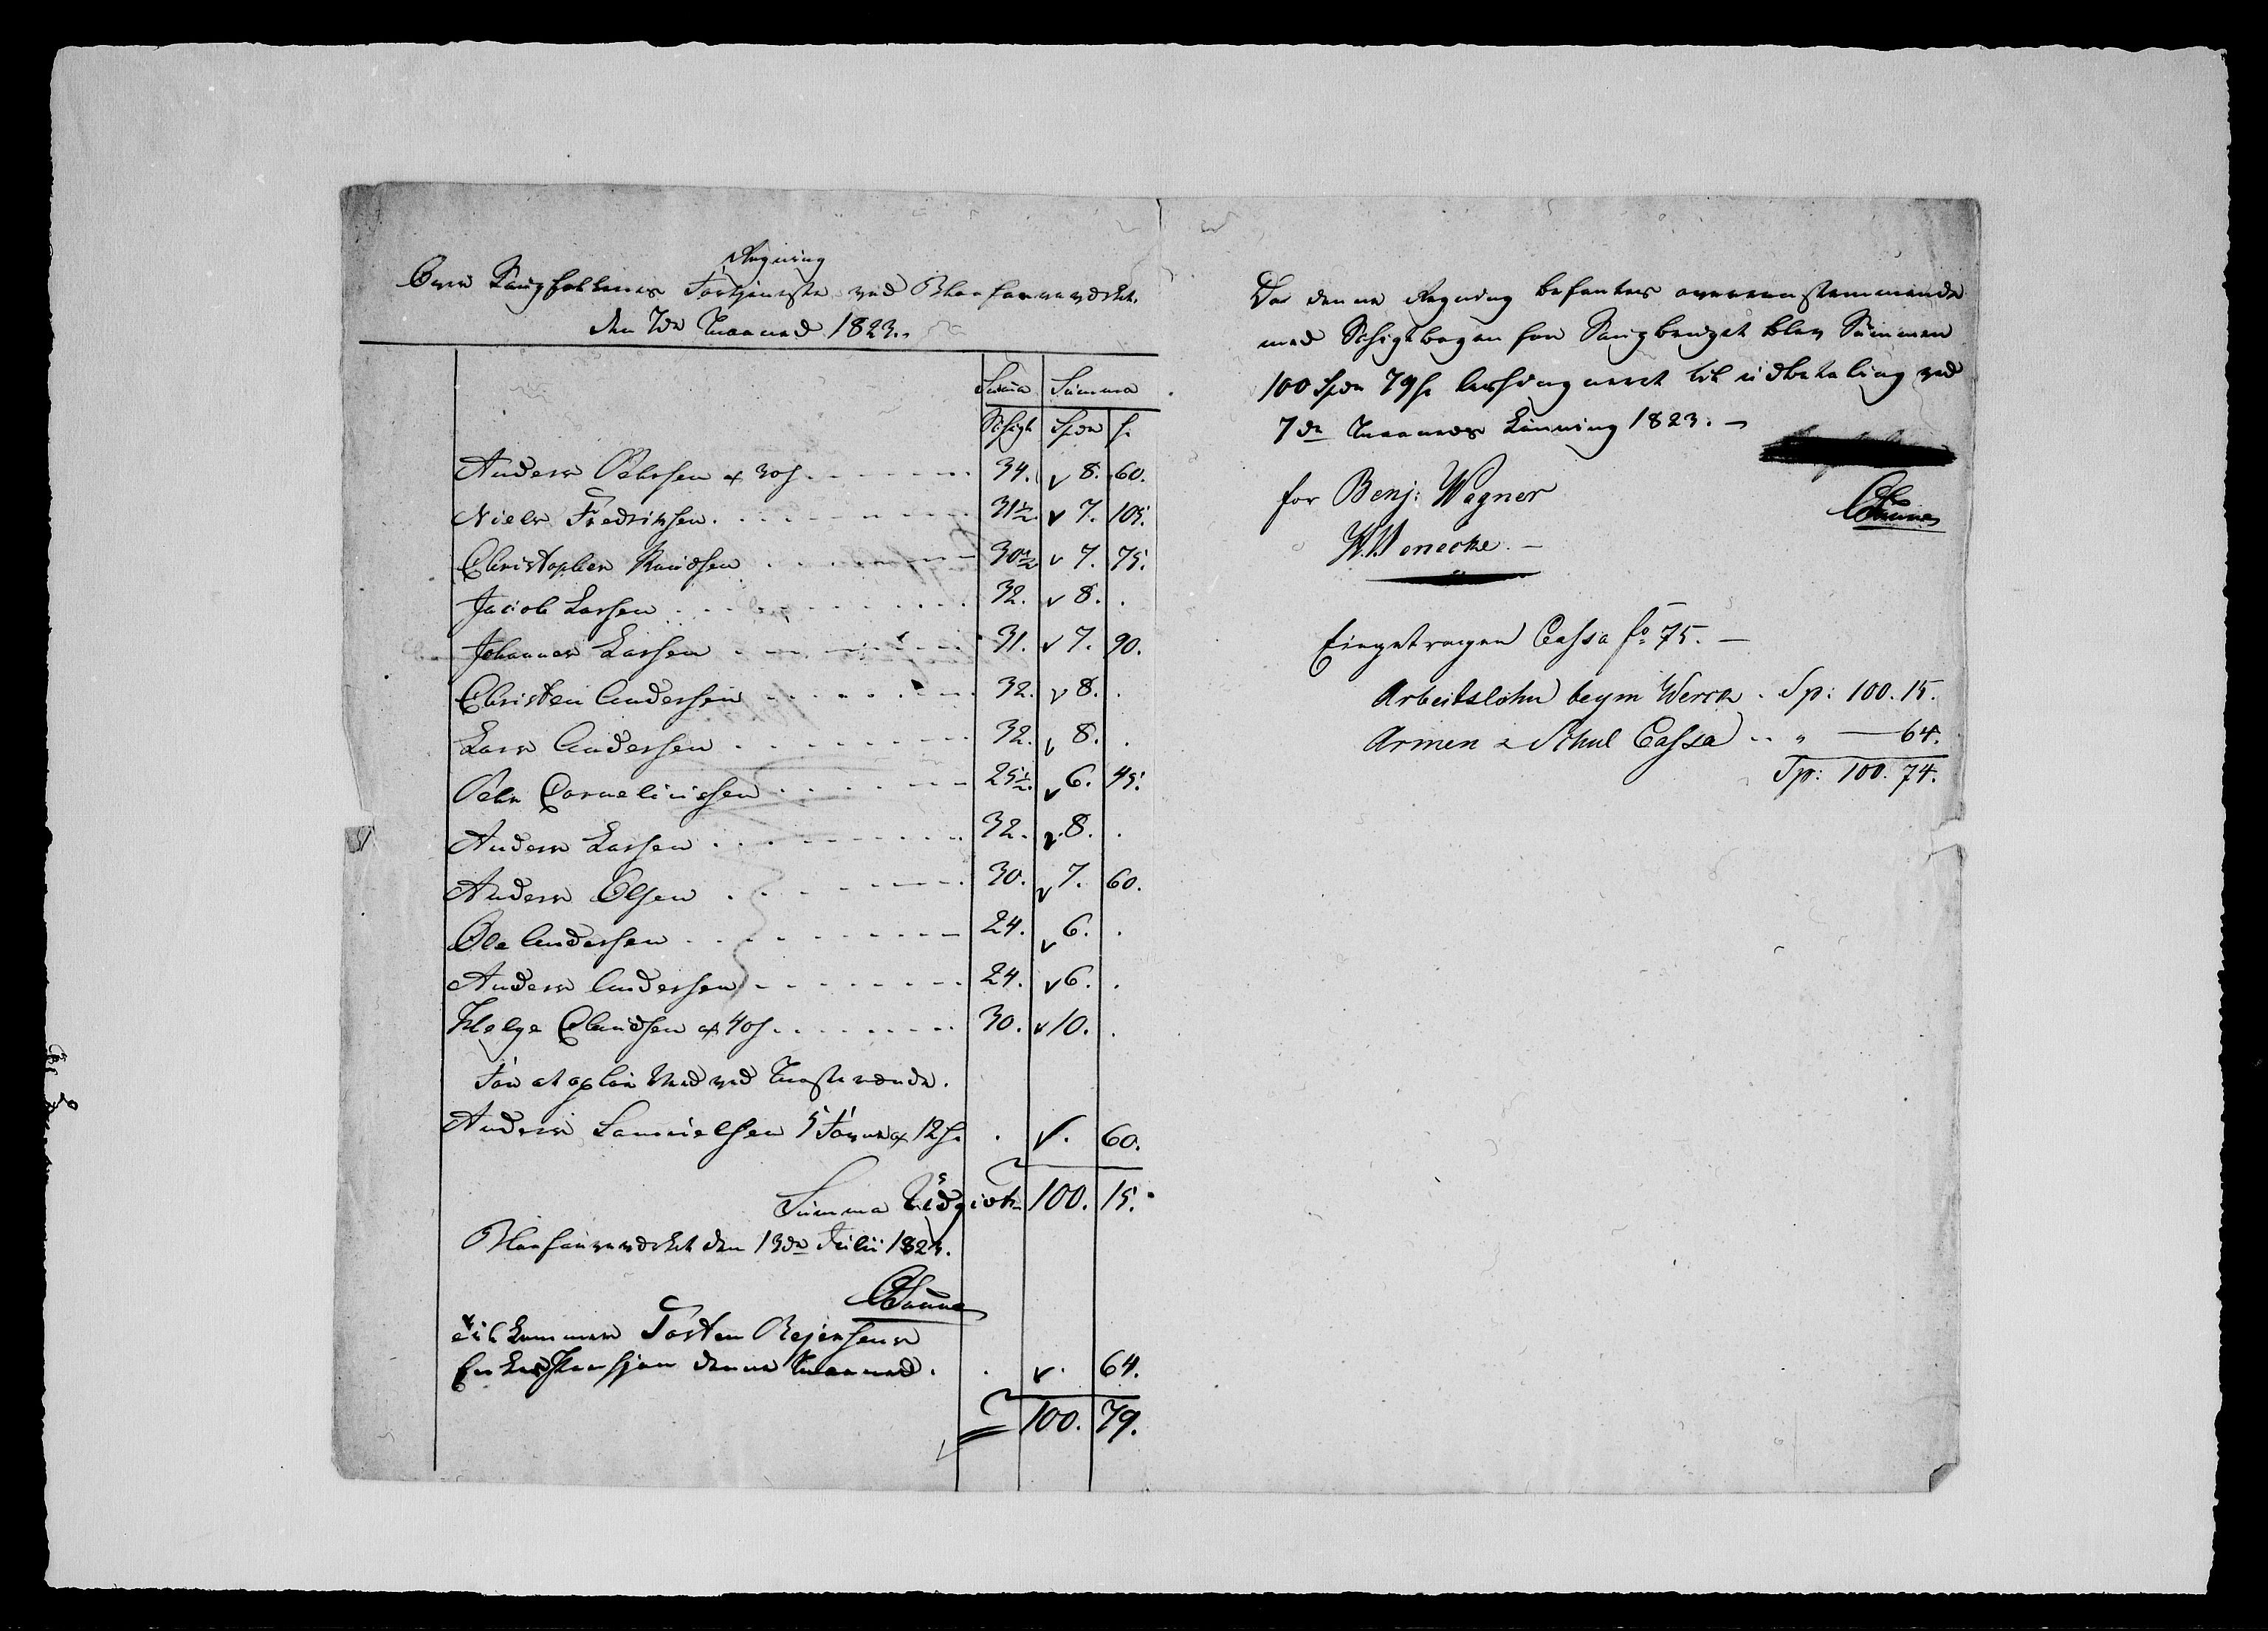 Regning
Over Saugfolkenes Fortjeneste ved Blaafarveværket
den 7de Maaned 1823.
Summa Summa
Schigt Spd s.
Anders Pedersen a 30 s 34. 8. 60.
Niels Fredrihsen 31½ 7. 105.
Christopher Knudsen 30½ 7. 75.
Jacob Larsen 32. 8. .
Johannes Larsen 31. 7. 90.
Christen Andersen 32. 8. .
Lars Andersen 32. 8. .
Peder Corneliusen 25½ 6. 45.
Anders Larsen 32. 8. .
Anders Olsen 30. 7. 60.
Ole Andersen 24. 6. .
Anders Andersen 24. 6. .
Helge Claudsen a 40 s 30. 10. .
For at oplöe Ved ved
Anders Samuelsen 5 a 12 s. . 60.
Summa Udgivt 100. 15.
Blaafarveværket den 13de Julii 1823.
til kommer Torsten
Enke denne Maaned. . 64.
100. 79.
Da denne Regning befantes overeenstemmende
med Schigtbogen for Saugbruget blev Summen
100 Spd 79 s til udbetaling ved
7de Maaneds Lönning 1823. –
for Benj: Wagner
Eingetragen Cassa fo 75. –
Arbeitslohn beym Werck . Sp: 100. 15.
Armen & Schul Cassa .. " — 64.
Sp: 100. 74.